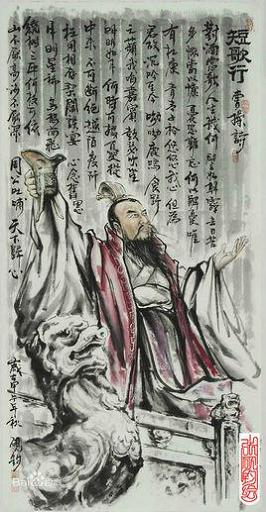 短歌行 曹操詩
對酒當歌人生幾何譬如朝露去日苦
多慨當以慷憂思難忘何以解憂唯
有杜康青青子衿悠悠我心但為
君故沉吟至今呦呦鹿鳴食野
之苹我有嘉賓鼓瑟吹笙
明明如月何時可掇憂從
中來不可斷絕越陌度阡
枉用相存契闊談宴心念舊恩
月明星稀烏鵲南飛
繞樹三匝何枝可依
山不厭高海不厭深周公吐哺天下歸心
甲午年秋